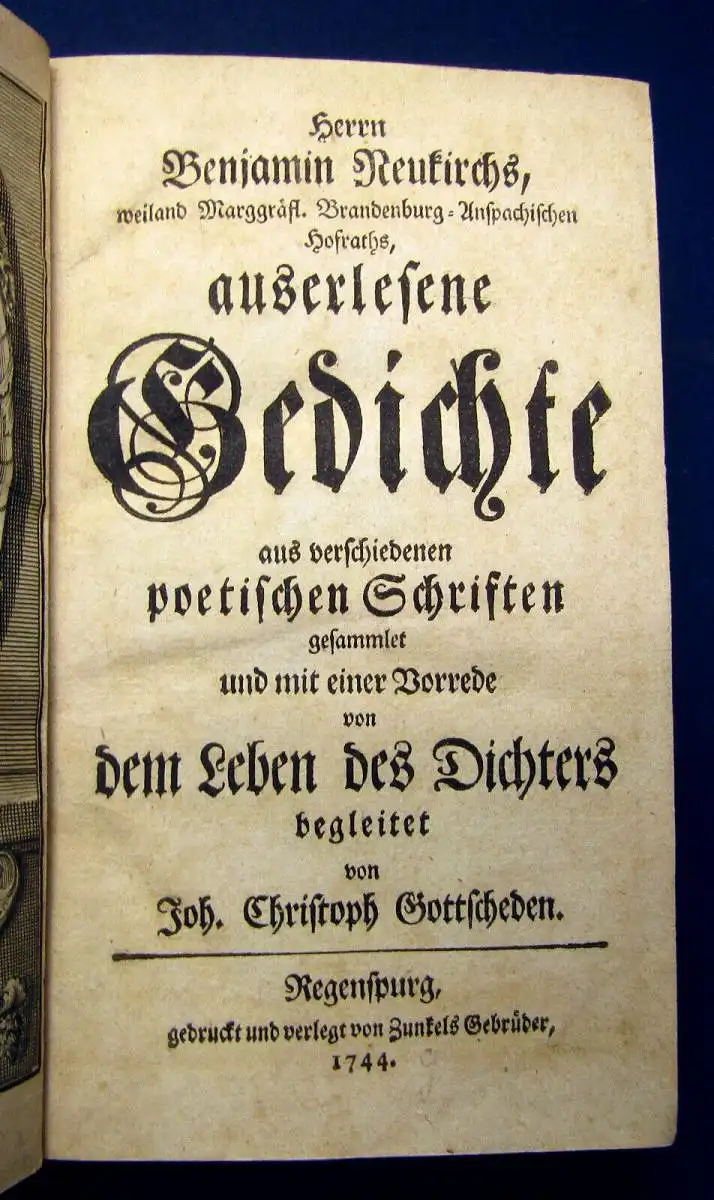 Herrn
Benjamin Neukirchs,
weiland Marggräfl. Brandenburg-Anspachischen
Hofraths,
auserlesene
Gedichte
aus verschiedenen
poetischen Schriften
gesammlet
und mit einer Vorrede
von
dem Leben des Dichters
begleitet
von
Joh. Christoph Gottscheden.
Regenspurg,
gedruckt und verlegt von Zunkels Gebrüder,
1744.